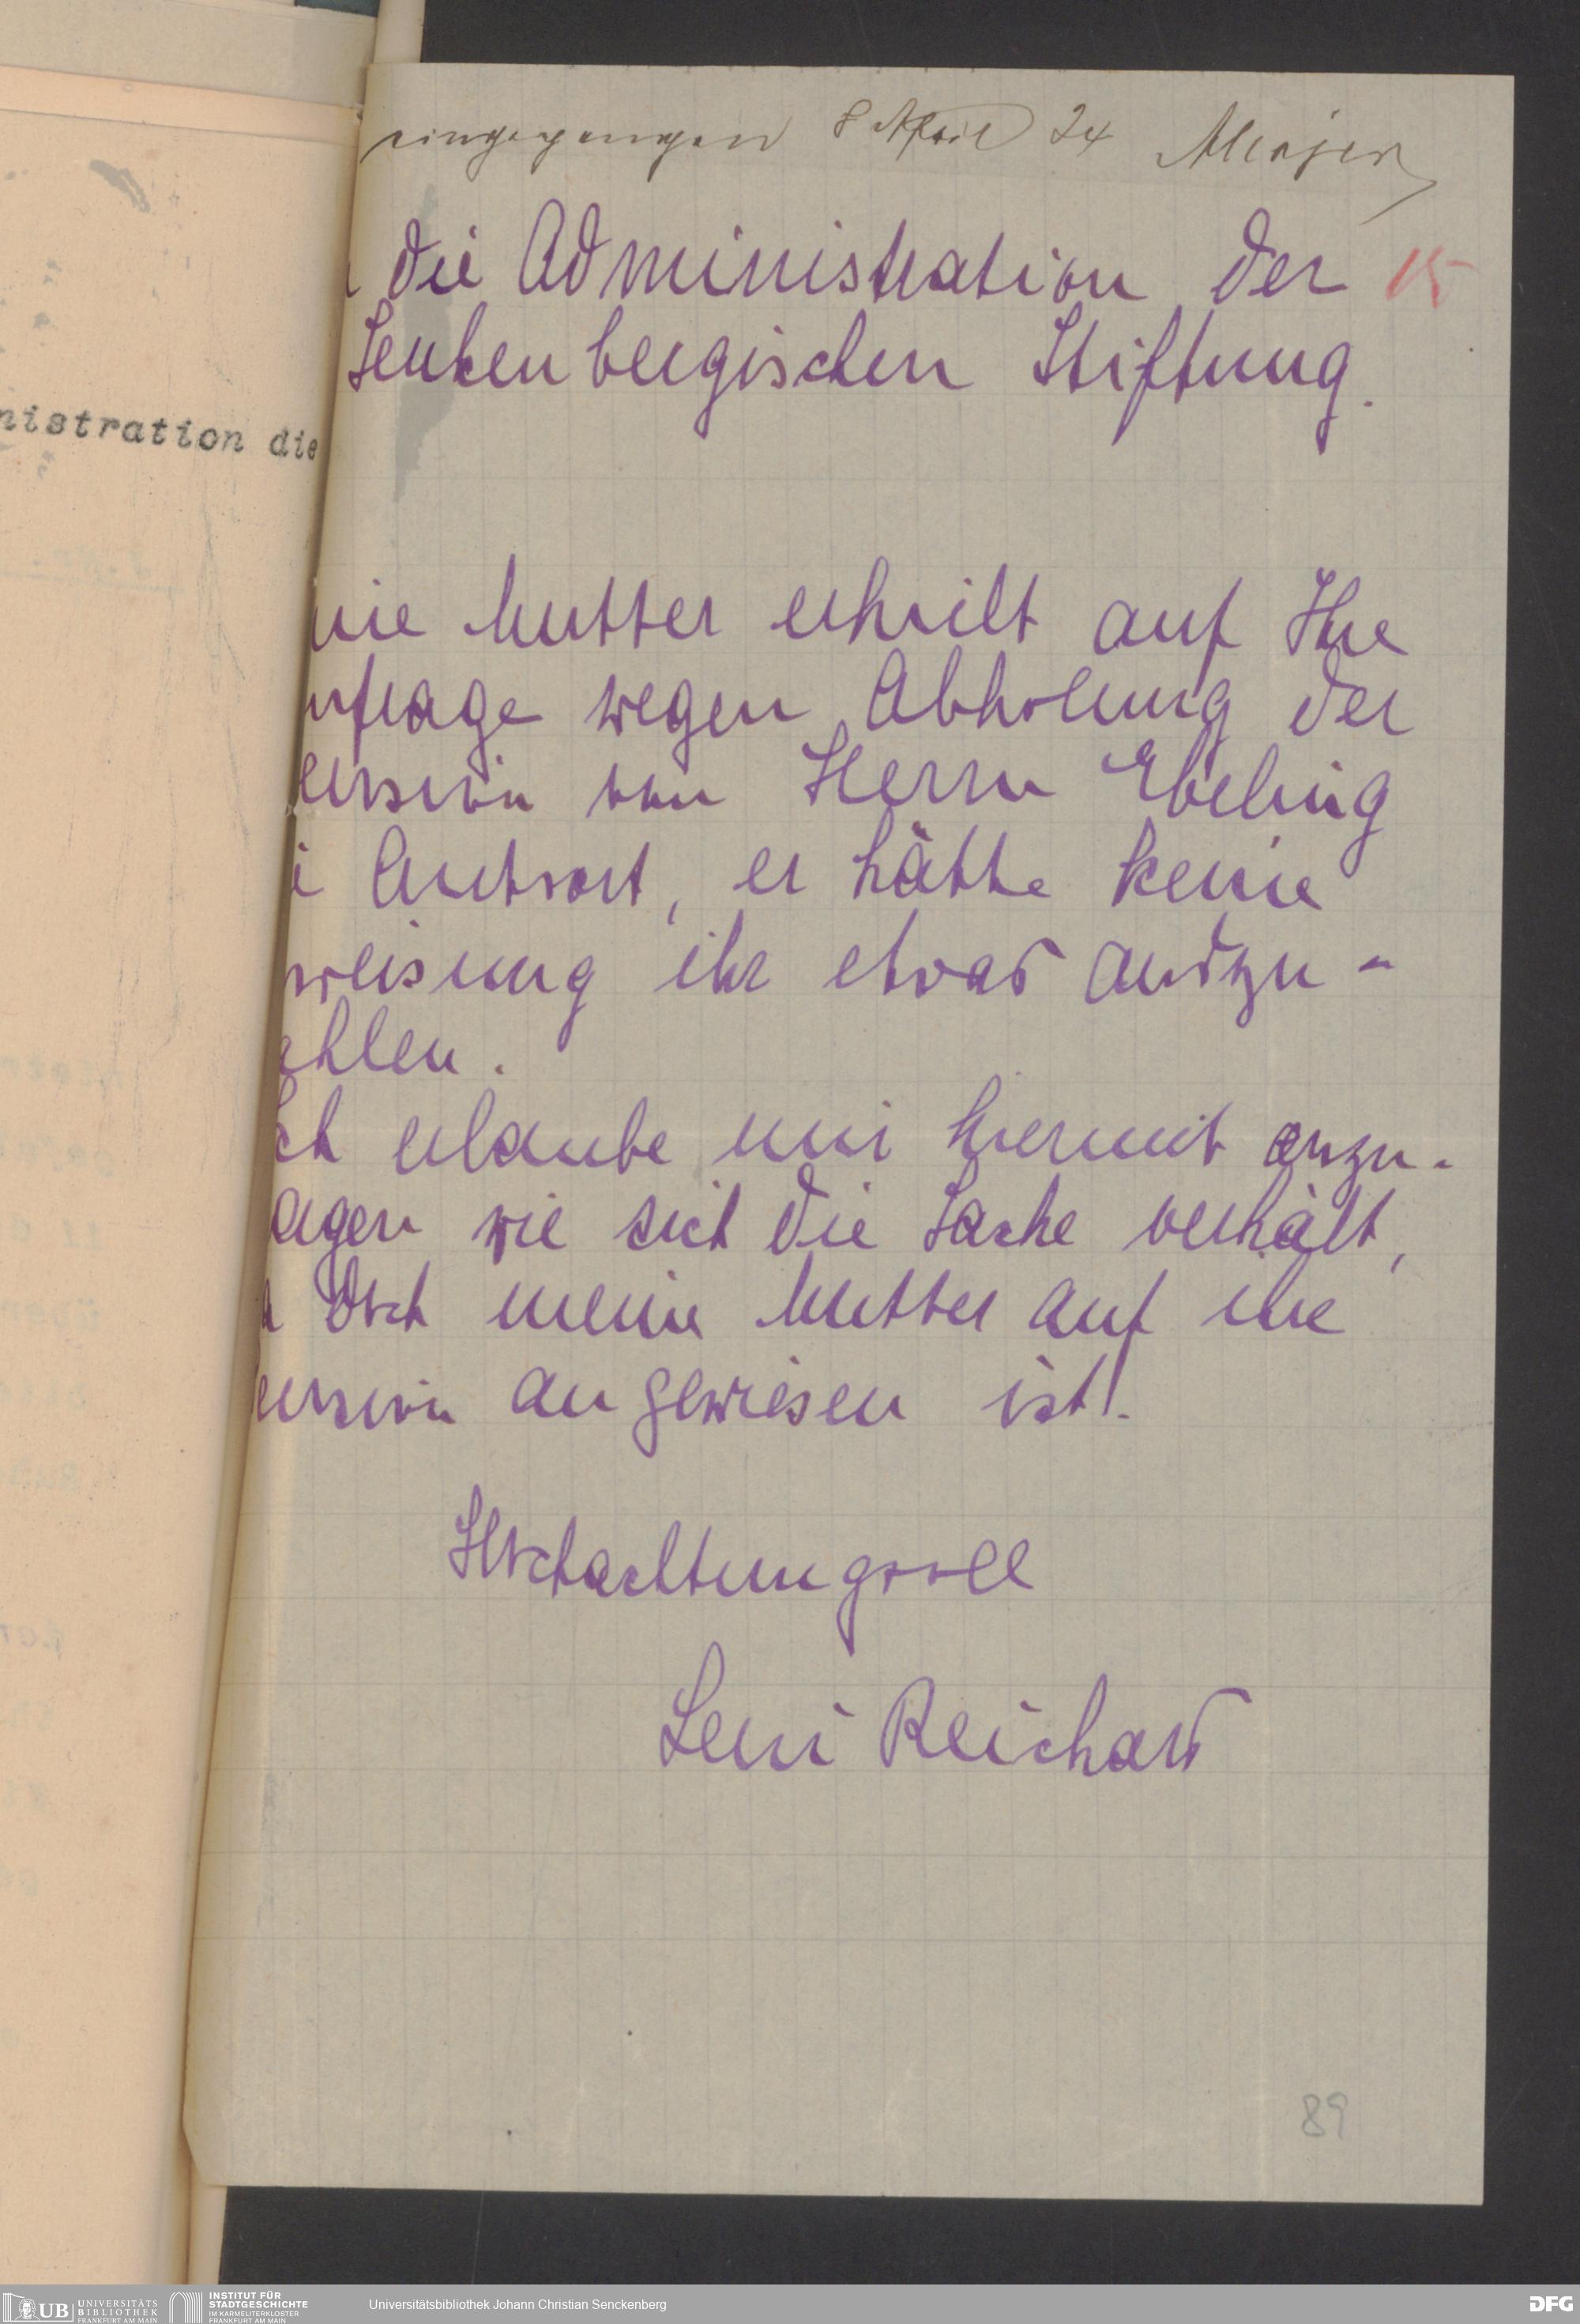 eingegangen 8 April 24 Meajer
die Administration der 15
Senkenbergischen Stiftung.
nistration die
ine Mutter erhielt auf Ihre
nfrage wegen Abholung der
ension von Herrn Ebeling
i Antwort, er hätte keine
weisung ihr etwas auszu-
ahlen.
Ich erlaube mir hiermit anzu-
agen wie sich die Sache verhält,
a doch meine Mutter auf ihre
ension angewiesen ist!.
Hochachtungsvoll
Leni Reichard
89
UB UNIVERSITÄTS BIBLIOTHEK FRANKFURT AM MAIN
INSTITUT FÜR STADTGESCHICHTE IM KARMELITERKLOSTER FRANKFURT AM MAIN
Universitätsbibliothek Johann Christian Senckenberg
DFG